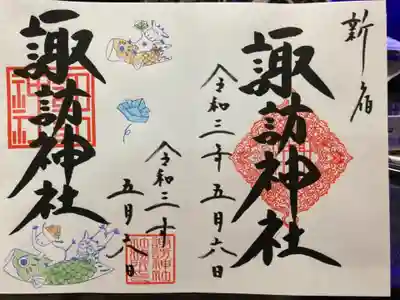 新宿
諏訪神社
令和三年五月六日
諏訪神社
令和三年
五月六日